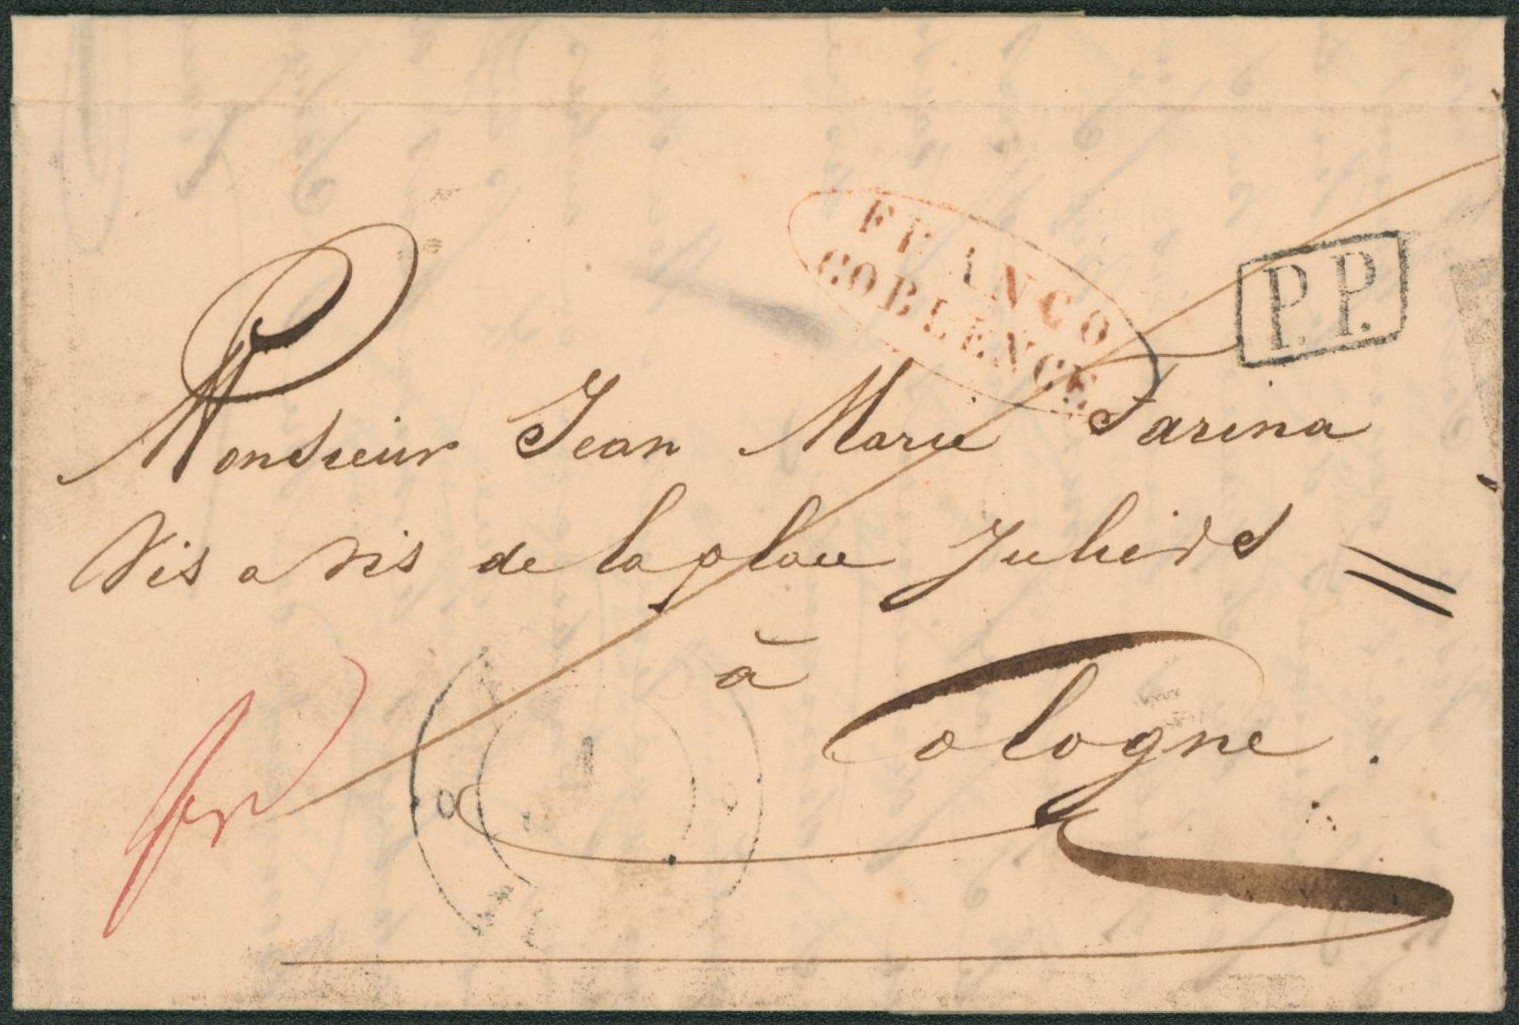 FRANCO
COBLENCE
P.P.
Monsieur Jean Marie Farina
Vis a vis de la place Juliers
à
Cologne.
fr